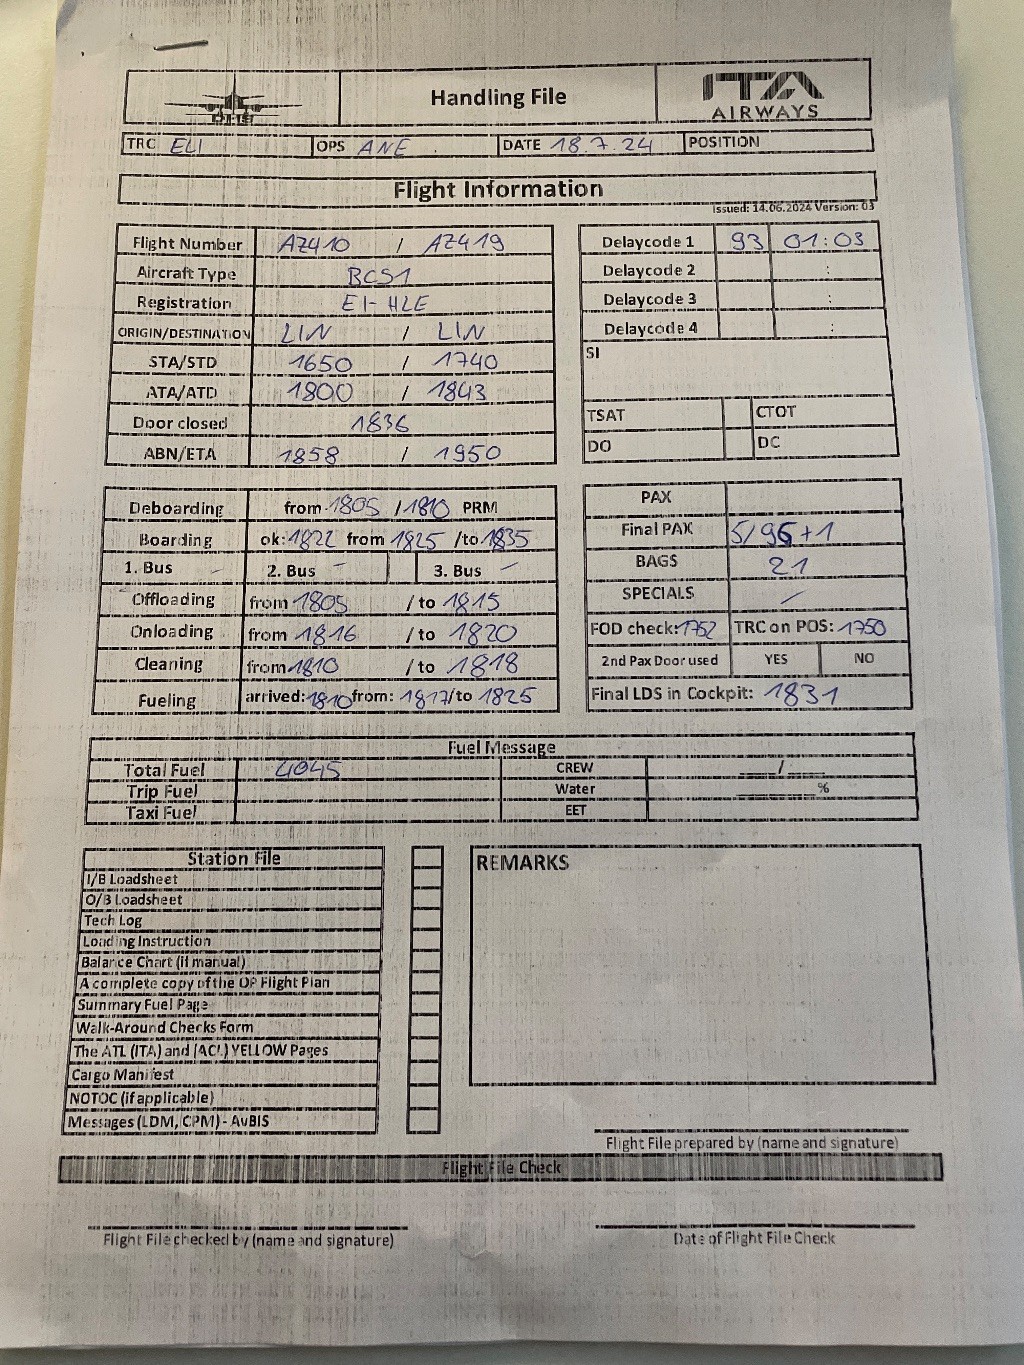 Handling File
ITA
AIRWAYS
TRC ELI OPS ANE DATE 18.7.24 POSITION
Flight Information
Issued: 14.06.2024 Version: 03
Flight Number AZ410 / AZ419
Aircraft Type BCS1
Registration EI-HLE
ORIGIN/DESTINATION LIN / LIN
STA/STD 1650 / 1740
ATA/ATD 1800 / 1843
Door closed 1836
ABN/ETA 1858 / 1950
Delaycode 1 93 01:03
Delaycode 2 :
Delaycode 3 :
Delaycode 4 :
SI
TSAT CTOT
DO DC
Deboarding from 1805 / 1810 PRM
Boarding ok: 1822 from 1825 /to 1835
1. Bus – 2. Bus – 3. Bus –
Offloading from 1805 / to 1815
Onloading from 1816 / to 1820
Cleaning from 1810 / to 1818
Fueling arrived: 1810 from: 1817/to 1825
PAX
Final PAX 5/96+1
BAGS 21
SPECIALS /
FOD check: 1752 TRC on POS: 1750
2nd Pax Door used YES NO
Final LDS in Cockpit: 1831
Fuel Message
Total Fuel 4045 CREW ____/____
Water ________%
Trip Fuel
Taxi Fuel EET
Station File
I/B Loadsheet
O/B Loadsheet
Tech Log
Loading Instruction
Balance Chart (if manual)
A complete copy of the OP Flight Plan
Summary Fuel Page
Walk-Around Checks Form
The ATL (ITA) and (ACL) YELLOW Pages
Cargo Manifest
NOTOC (if applicable)
Messages (LDM, CPM) - AvBIS
REMARKS
Flight File prepared by (name and signature)
Flight File Check
Flight File checked by (name and signature)
Date of Flight File Check